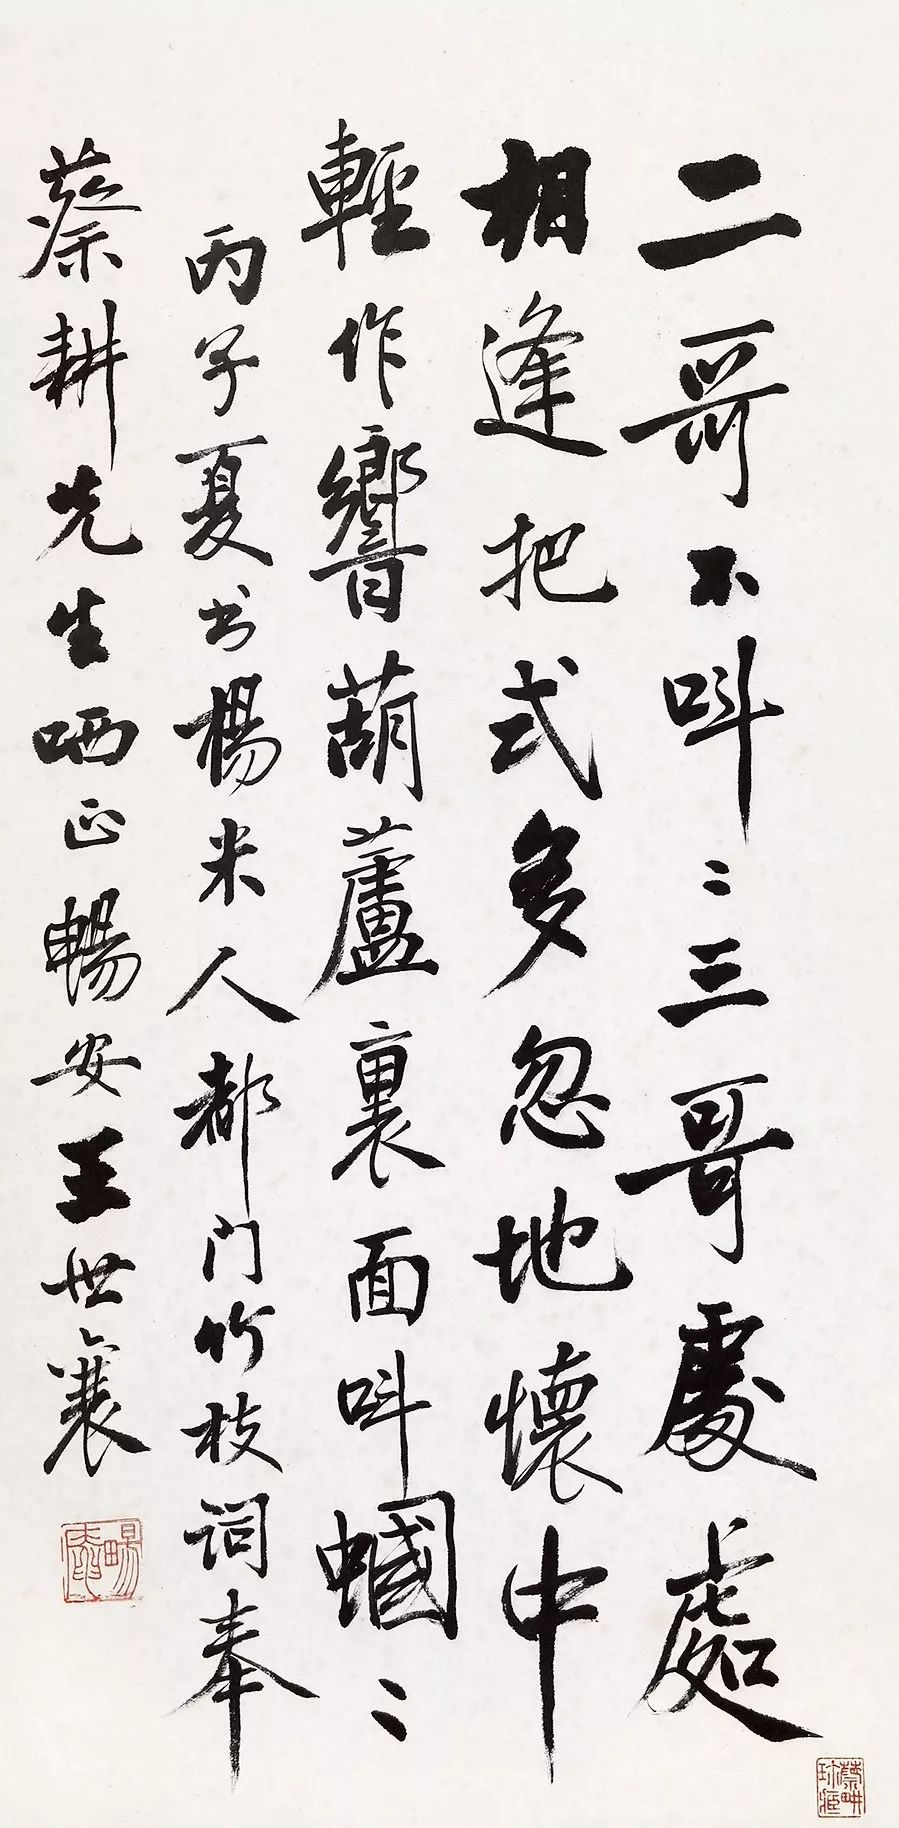 二哥不叫〻三哥處處
相逢把式多忽地懷中
輕作響葫蘆裏面叫蟈〻
丙子夏书楊米人都门竹枝词奉
蔡耕先生哂正暢安王世襄
暢安
蔡耕珍藏